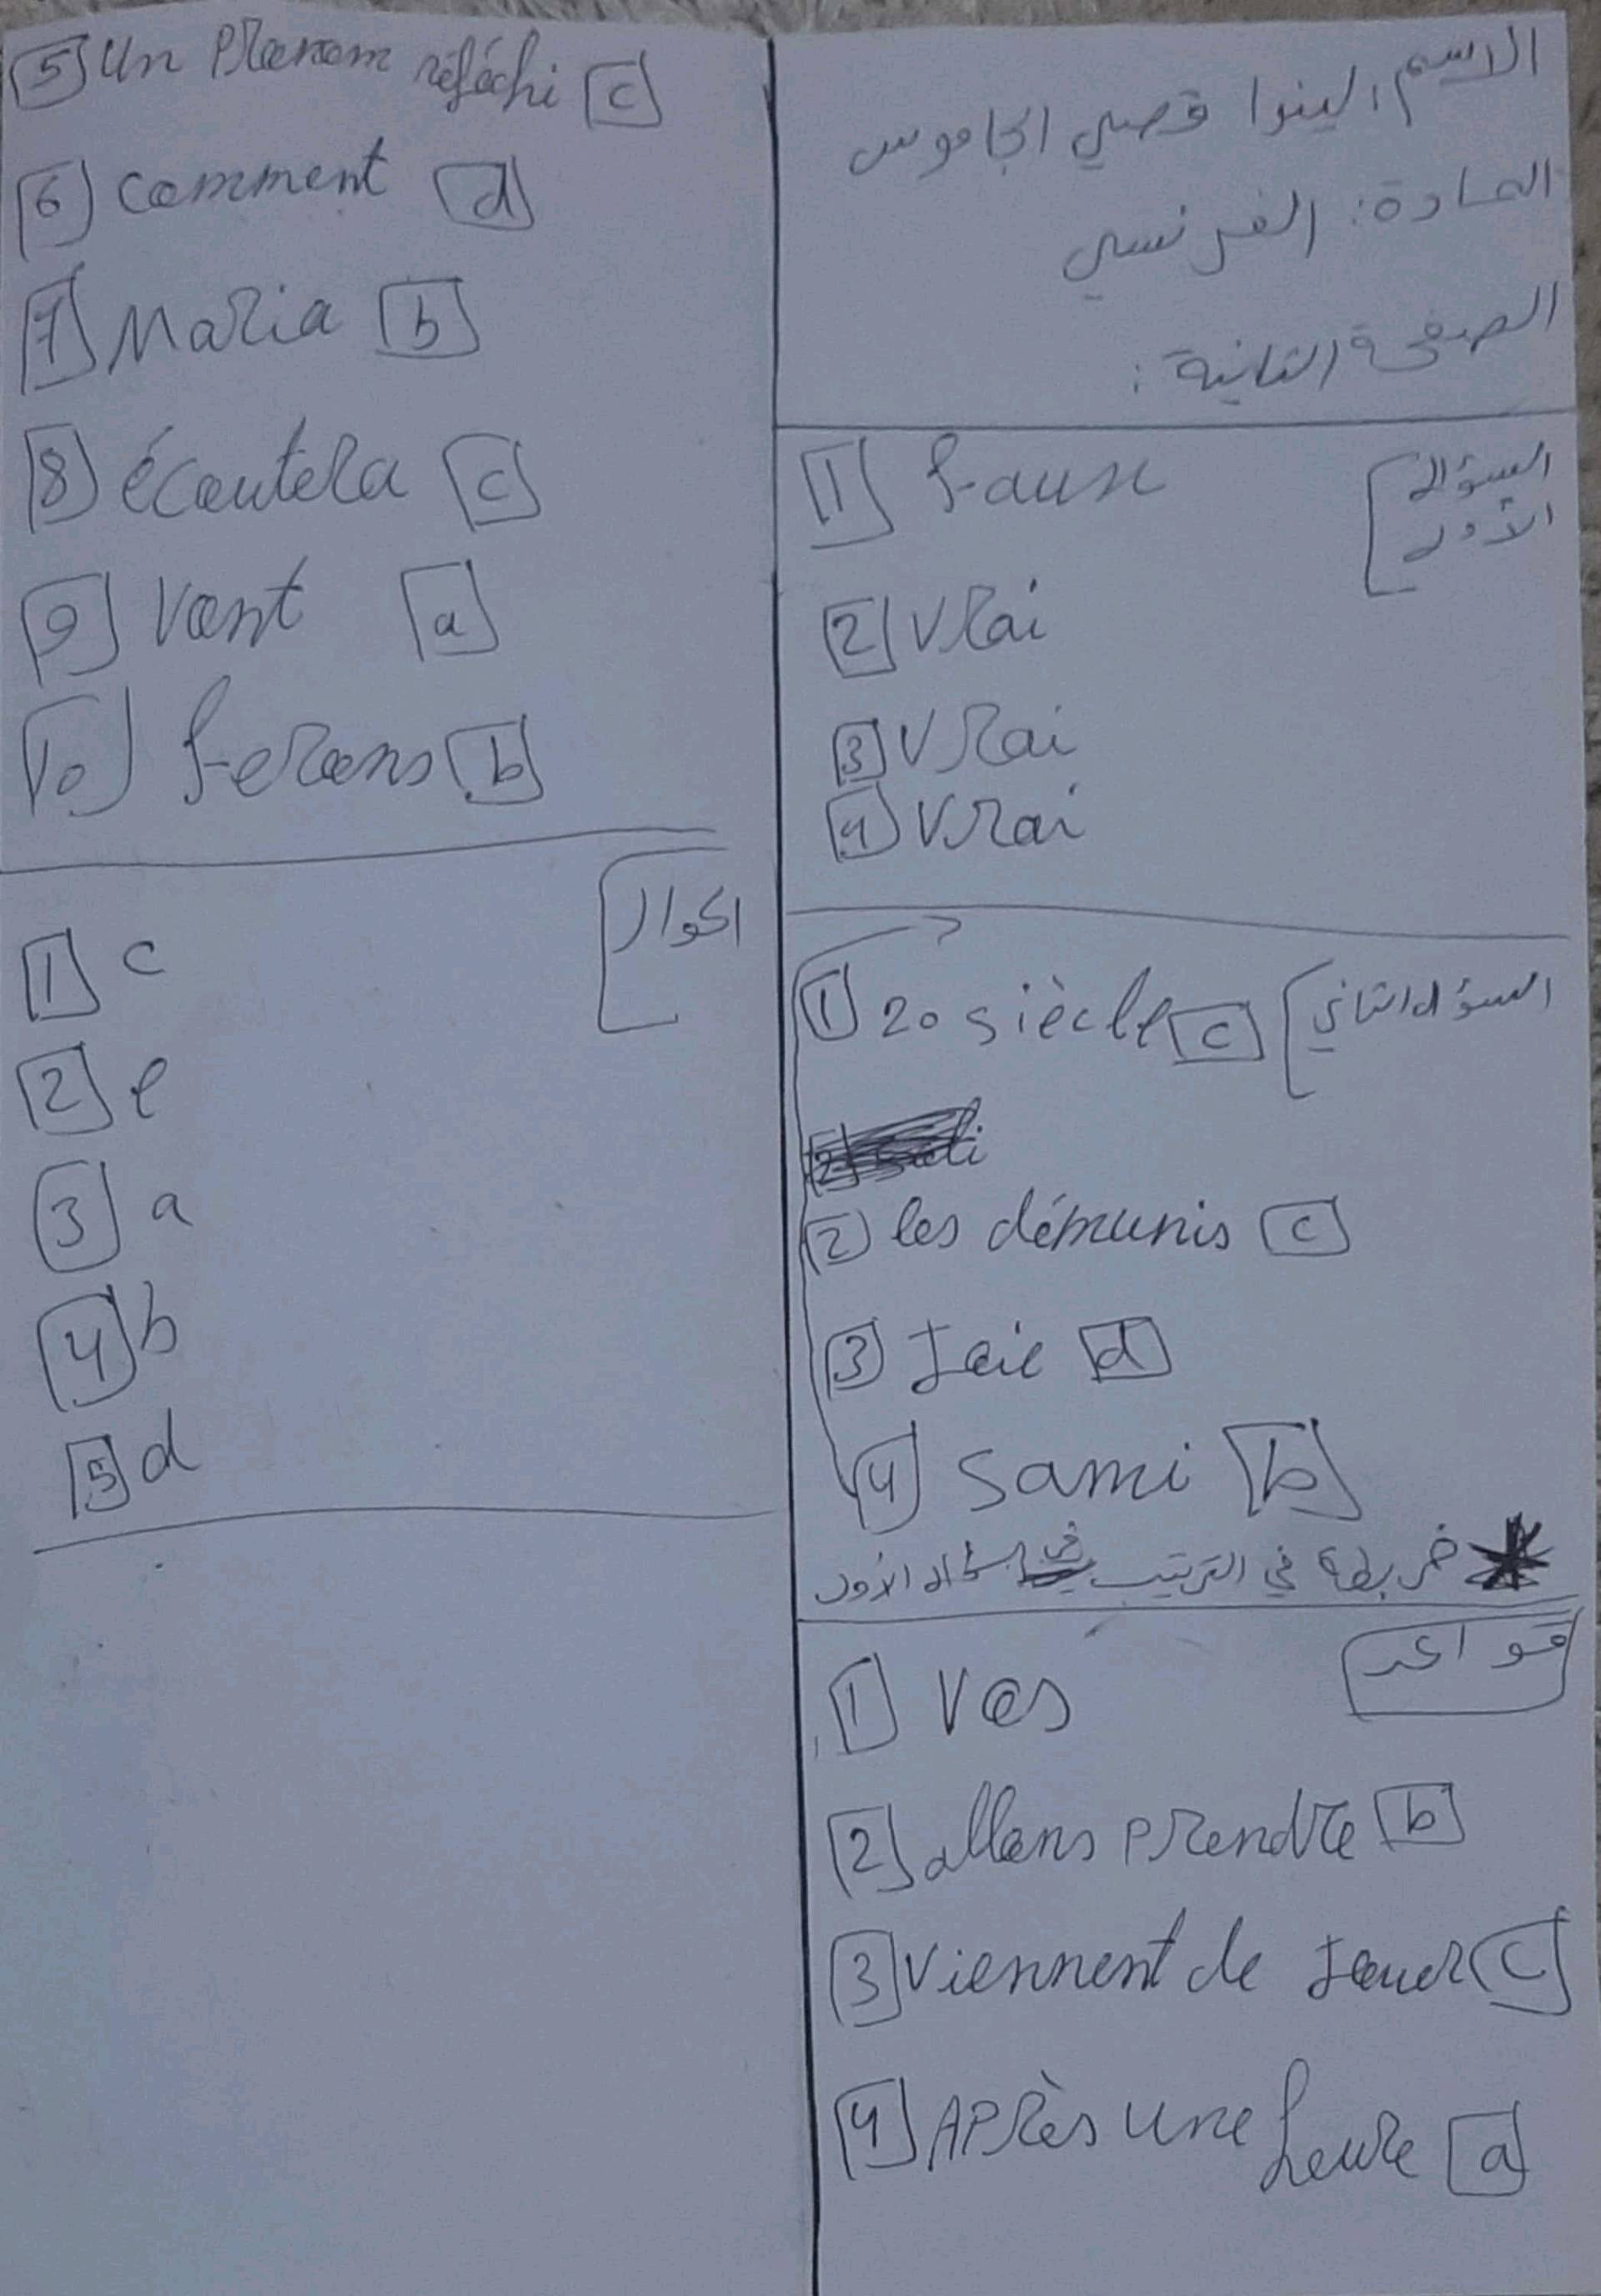 الاسم: الينوا قصي الجاموس
المادة: الفرنسي
الصفحة الثانية:
السؤال الأول
1 faux
2 Vrai
3 Vrai
4 Vrai
السؤال الثاني
1 20 siècle c
2 les démunis c
3 Joie d
4 Sami b
* خربطة في الترتيب في السؤال الأول
قواعد
1 Vas
2 allons prendre b
3 Viennent de Jouer c
4 APrès une heure a
5 Un Pronom réfléchi c
6 Comment d
7 Maria b
8 écoutera c
9 Vont a
10 ferons b
الحوار
1 c
2 e
3 a
4 b
5 d